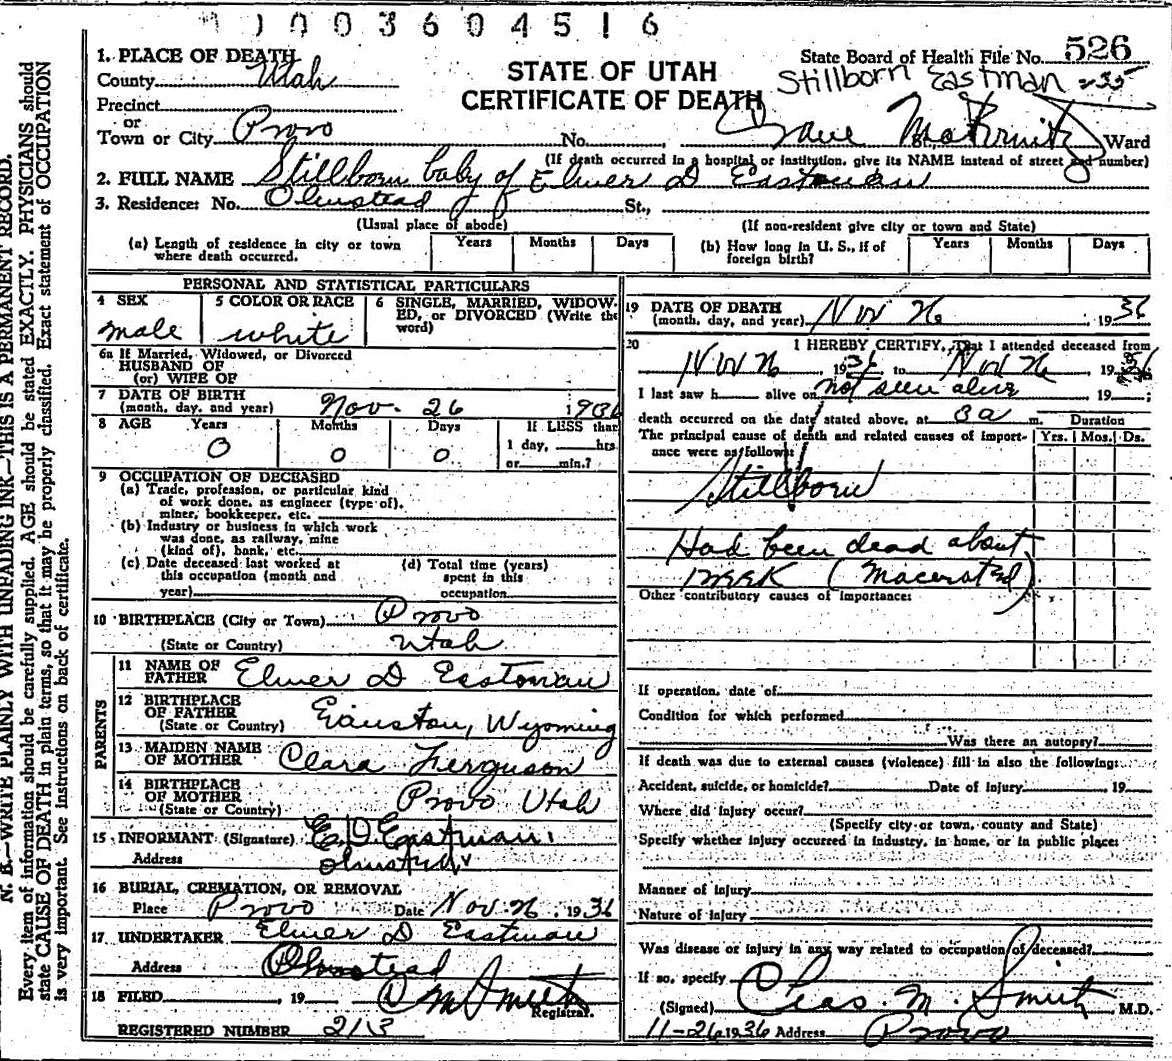 1003604516
N. B.—WRITE PLAINLY WITH UNFADING INK—THIS IS A PERMANENT RECORD.
Every item of information should be carefully supplied. AGE should be stated EXACTLY. PHYSICIANS should
state CAUSE OF DEATH in plain terms, so that it may be properly classified. Exact statement of OCCUPATION
is very important. See instructions on back of certificate.
1. PLACE OF DEATH
County Utah
Precinct
or
Town or City Provo
STATE OF UTAH
CERTIFICATE OF DEATH
State Board of Health File No. 526
Stillborn Eastman
No. St., Maternity Ward
(If death occurred in a hospital or institution, give its NAME instead of street and number)
2. FULL NAME Stillborn baby of Elmer D Eastman
3. Residence: No. Olmstead St.,
(Usual place of abode) (If non-resident give city or town and State)
(a) Length of residence in city or town where death occurred. Years Months Days
(b) How long in U. S., if of foreign birth? Years Months Days
PERSONAL AND STATISTICAL PARTICULARS
4 SEX male
5 COLOR OR RACE white
6 SINGLE, MARRIED, WIDOWED, or DIVORCED (Write the word)
6a If Married, Widowed, or Divorced
HUSBAND OF
(or) WIFE OF
7 DATE OF BIRTH
(month, day, and year) Nov. 26 1936
8 AGE Years Months Days If LESS than
1 day, hrs
or min.?
0 0 0
9 OCCUPATION OF DECEASED
(a) Trade, profession, or particular kind
of work done, as engineer (type of),
miner, bookkeeper, etc.
(b) Industry or business in which work
was done, as railway, mine
(kind of), bank, etc.
(c) Date deceased last worked at
this occupation (month and
year)
(d) Total time (years)
spent in this
occupation
10 BIRTHPLACE (City or Town) Provo
(State or Country) Utah
PARENTS
11 NAME OF FATHER Elmer D Eastman
12 BIRTHPLACE OF FATHER
(State or Country) Evanston, Wyoming
13 MAIDEN NAME OF MOTHER Clara Ferguson
14 BIRTHPLACE OF MOTHER
(State or Country) Provo Utah
15 INFORMANT (Signature) E. D. Eastman
Address Olmsted
16 BURIAL, CREMATION, OR REMOVAL
Place Provo Date Nov 26, 1936
17 UNDERTAKER Elmer D Eastman
Address Olmstead
18 FILED , 19 Smith
Registrar.
REGISTERED NUMBER 213
19 DATE OF DEATH
(month, day, and year) Nov 26, 1936
20 I HEREBY CERTIFY, That I attended deceased from
Nov 26, 1936 to Nov 26, 1936
I last saw h alive on not seen alive 19 ;
death occurred on the date stated above, at 3 a m. Duration
The principal cause of death and related causes of importance were as follows: Yrs. Mos. Ds.
Stillborn
Had been dead about
week (Macerated)
Other contributory causes of importance:
If operation, date of:
Condition for which performed
Was there an autopsy?
If death was due to external causes (violence) fill in also the following:
Accident, suicide, or homicide? Date of injury 19
Where did injury occur?
(Specify city or town, county and State)
Specify whether injury occurred in industry, in home, or in public place:
Manner of injury
Nature of injury
Was disease or injury in any way related to occupation of deceased?
If so, specify
(Signed) Chas. M. Smith M.D.
11-26 1936 Address Provo